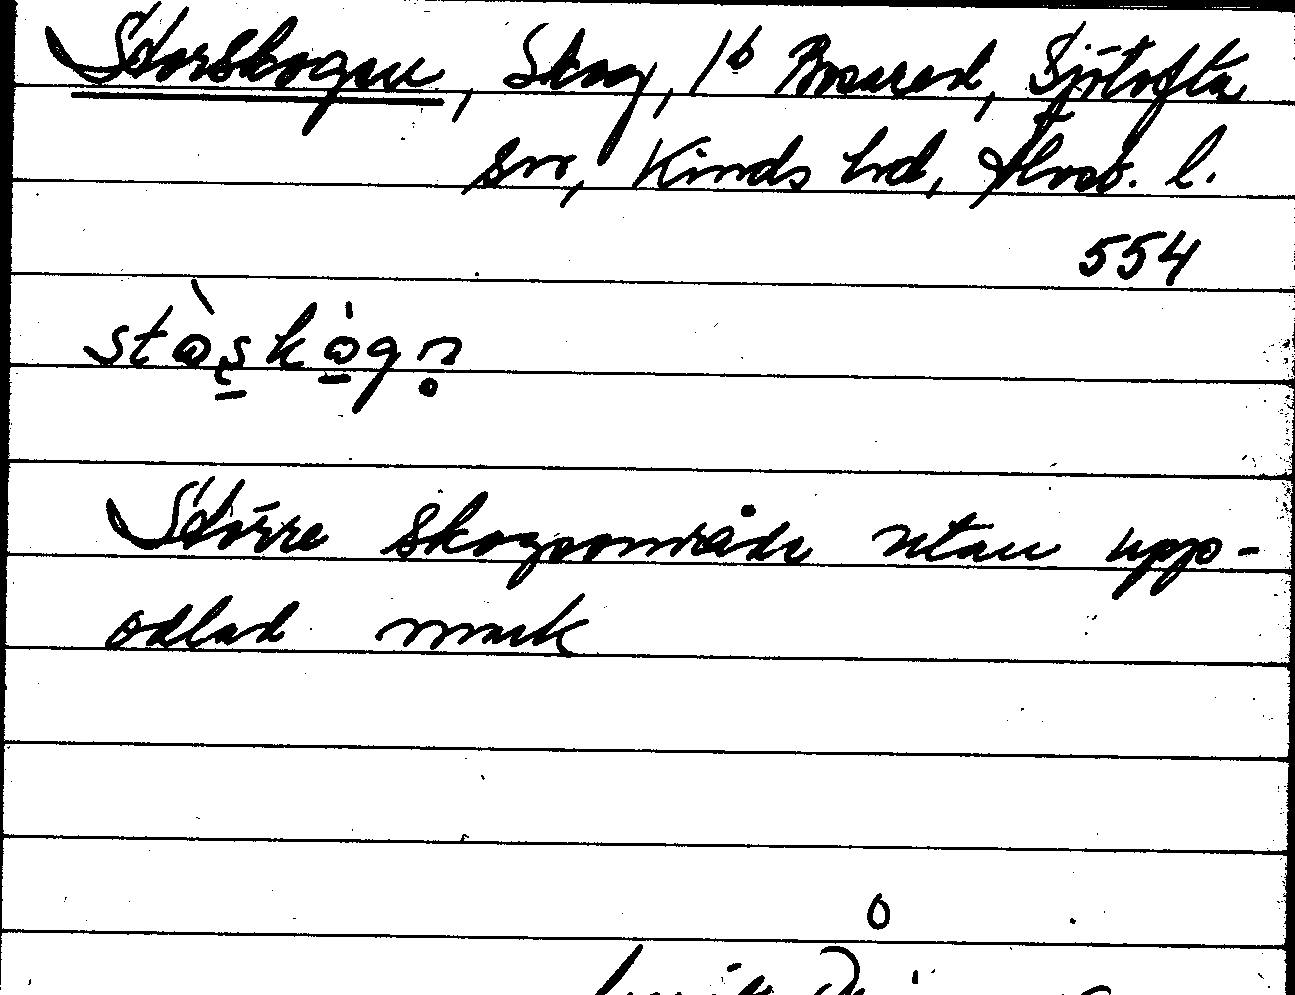 Storskogen, Skog, 1b Bosared, Sjötofta
sn, Kinds hd, Älvsb. l.
554
Större skogsområde utan upp-
odlad mark